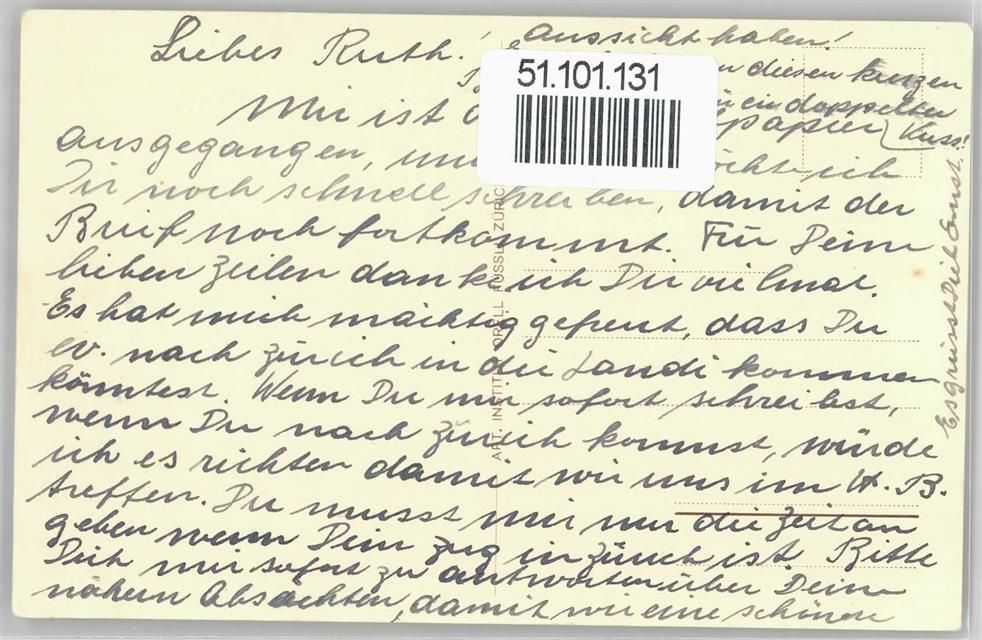 Liebes Ruth!
Mir ist papier
ausgegangen, und möchte ich
Dir noch schnell schreiben, damit der
Brief noch fortkommt. Für Deine
lieben Zeilen danke ich Dir vielmal.
Es hat mich mächtig gefreut, dass Du
ev. nach Zürich in die Landi kommen
könntest. Wenn Du mir sofort schreibst,
wenn Du nach Zürich kommst, würde
ich es richten damit wir uns im H.B.
treffen. Du musst mir nur die Zeit an
geben wenn Dein Zug in Zürich ist. Bitte
Dich mir sofort zu antworten über Deine
nähern Absichten, damit wir eine schöne
Aussicht haben!
diesen kurzen
ein doppelter
Kuss!
Es grüsst Dich Ernst.
51.101.131
ART. INSTITUT ORELL FÜSSLI, ZÜRICH